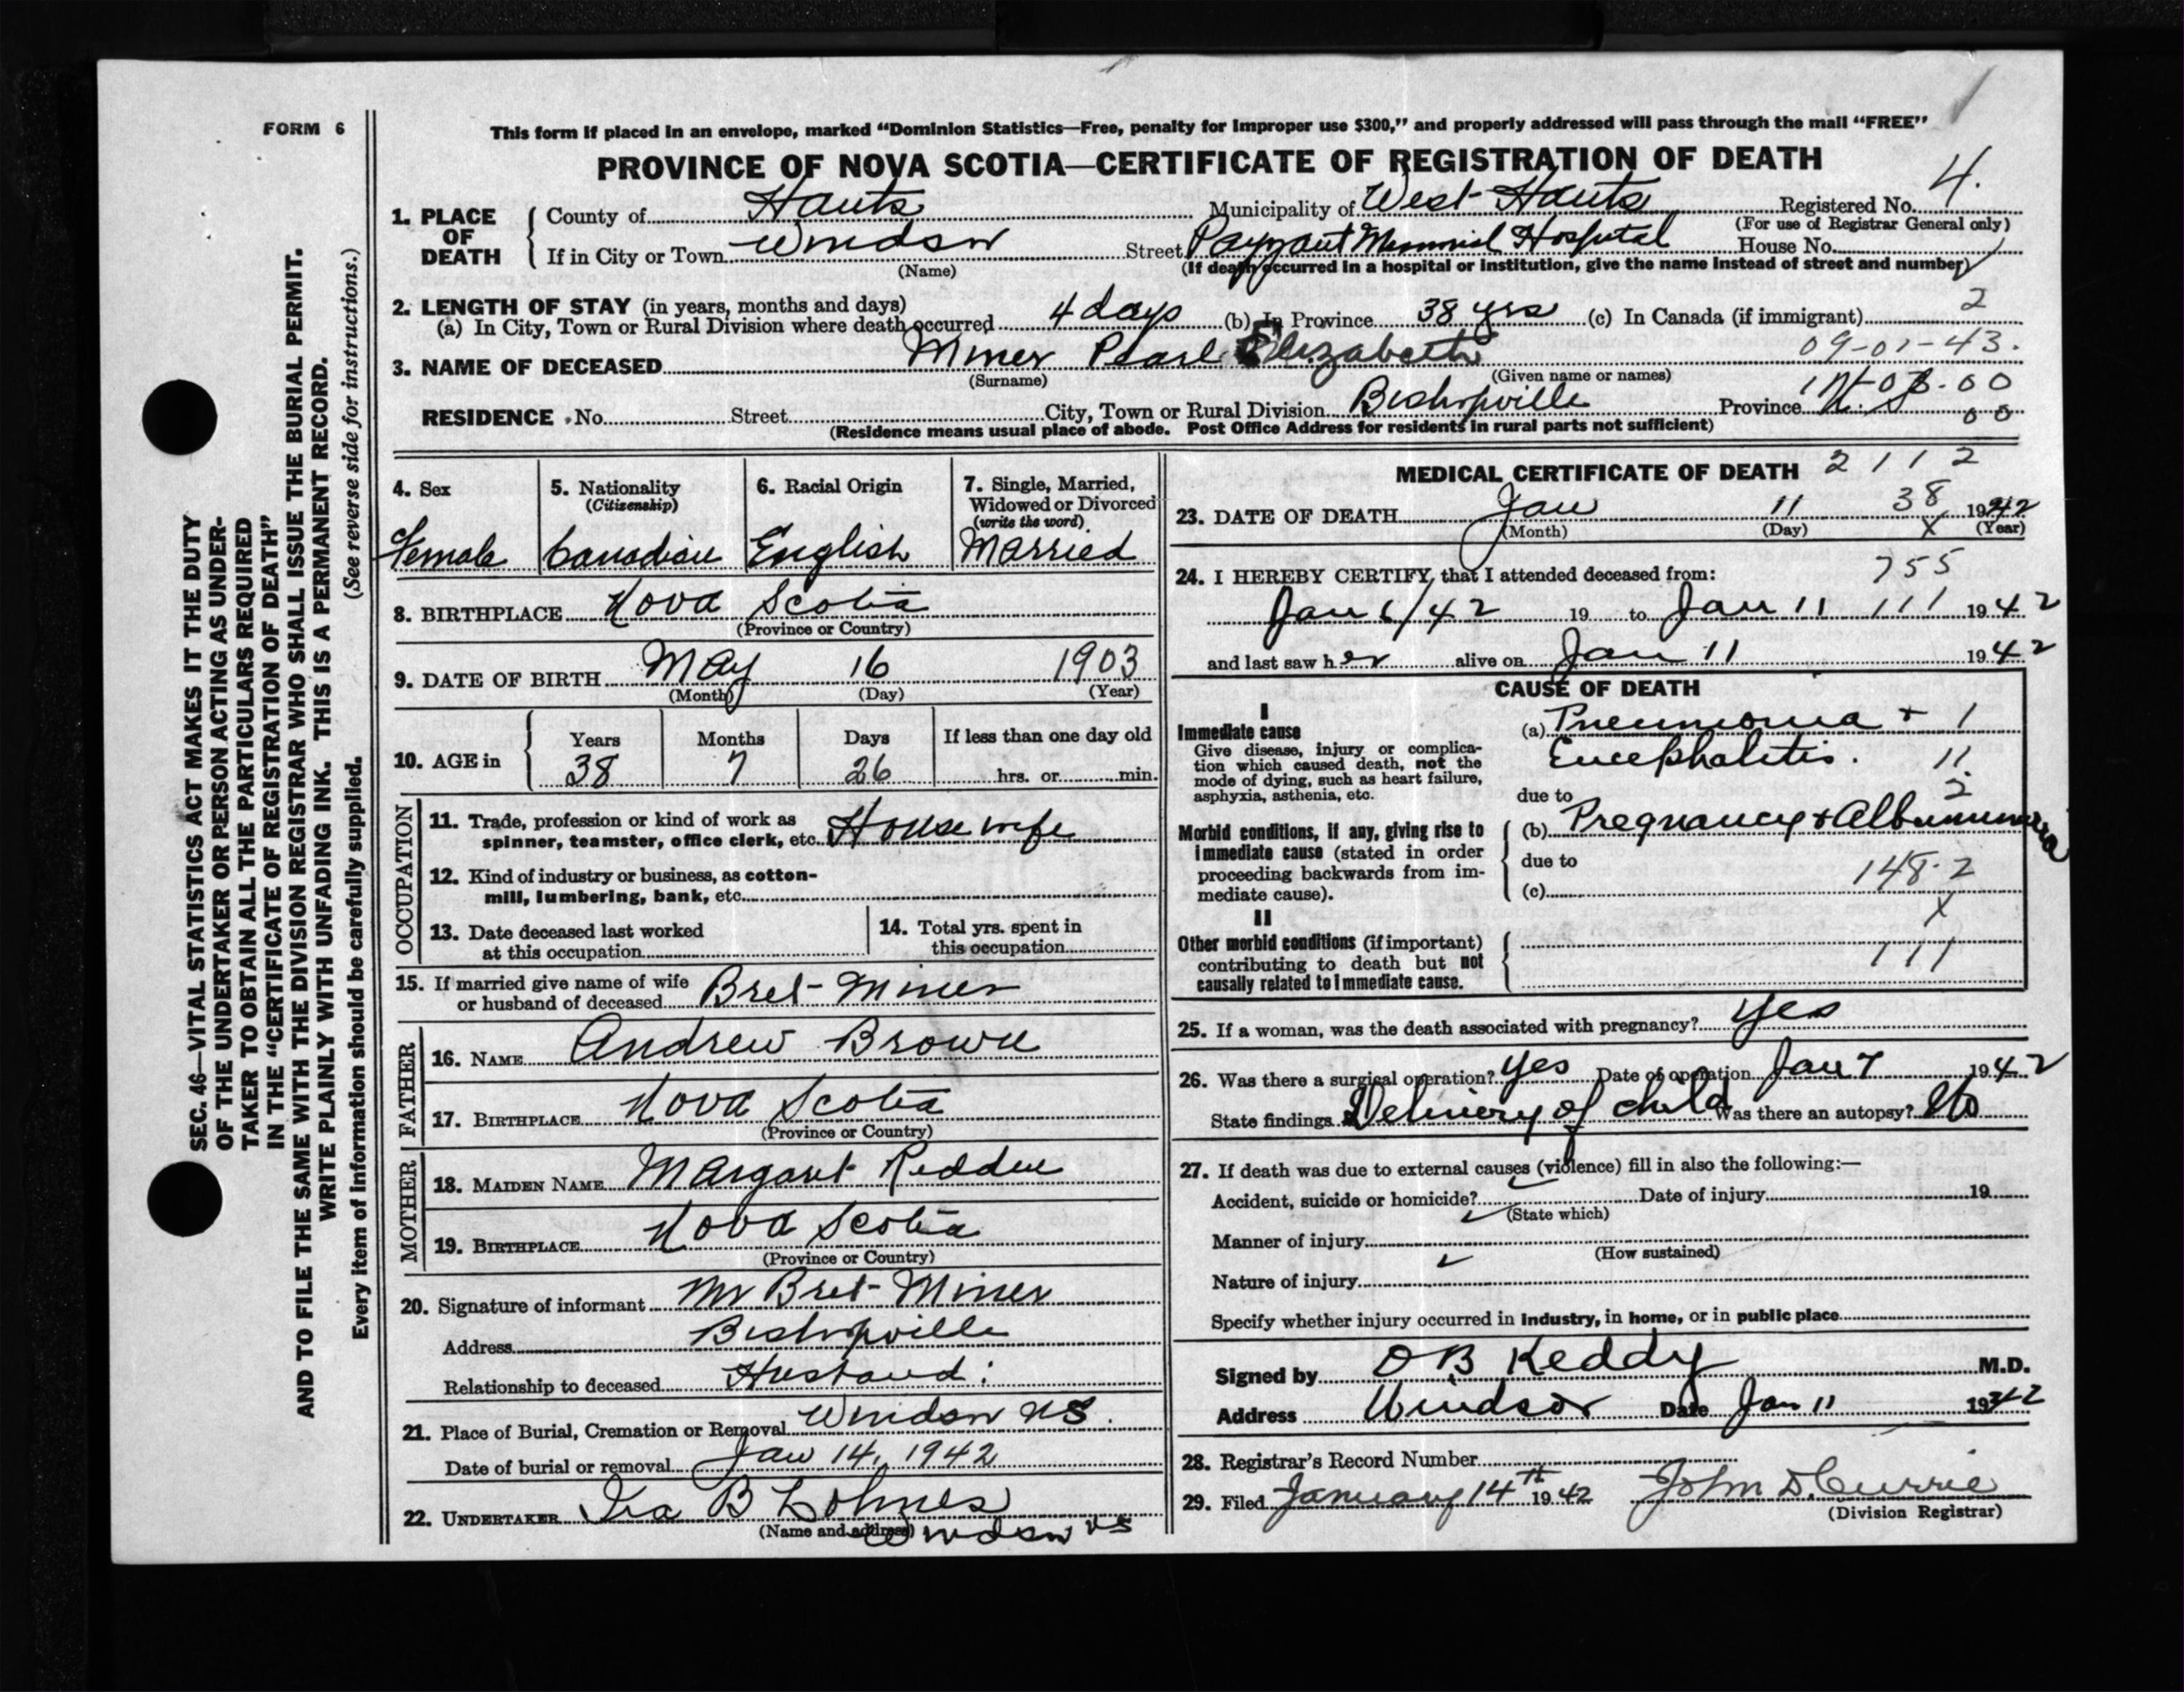 FORM 6
This form if placed in an envelope, marked “Dominion Statistics—Free, penalty for improper use $300,” and properly addressed will pass through the mail “FREE”
PROVINCE OF NOVA SCOTIA—CERTIFICATE OF REGISTRATION OF DEATH
1. PLACE OF DEATH County of Hants Municipality of West Hants Registered No. 4.
(For use of Registrar General only)
If in City or Town Windsor Street Payzant Memorial Hospital House No.
(Name) (If death occurred in a hospital or institution, give the name instead of street and number)
2. LENGTH OF STAY (in years, months and days) 2
(a) In City, Town or Rural Division where death occurred 4 days (b) In Province 38 yrs (c) In Canada (if immigrant)
3. NAME OF DECEASED Miner Pearl Elizabeth 09-01-43.
(Surname) (Given name or names)
RESIDENCE No. Street City, Town or Rural Division Bishopville Province N. S 00
(Residence means usual place of abode. Post Office Address for residents in rural parts not sufficient)
SEC. 46—VITAL STATISTICS ACT MAKES IT THE DUTY
OF THE UNDERTAKER OR PERSON ACTING AS UNDER-
TAKER TO OBTAIN ALL THE PARTICULARS REQUIRED
IN THE “CERTIFICATE OF REGISTRATION OF DEATH”
AND TO FILE THE SAME WITH THE DIVISION REGISTRAR WHO SHALL ISSUE THE BURIAL PERMIT.
WRITE PLAINLY WITH UNFADING INK. THIS IS A PERMANENT RECORD.
Every item of information should be carefully supplied. (See reverse side for instructions.)
4. Sex
Female
5. Nationality
(Citizenship)
Canadian
6. Racial Origin
English
7. Single, Married,
Widowed or Divorced
(write the word)
Married
8. BIRTHPLACE Nova Scotia
(Province or Country)
9. DATE OF BIRTH May 16 1903
(Month) (Day) (Year)
10. AGE in Years Months Days If less than one day old
38 7 26 hrs. or min.
OCCUPATION
11. Trade, profession or kind of work as
spinner, teamster, office clerk, etc. Housewife
12. Kind of industry or business, as cotton-
mill, lumbering, bank, etc.
13. Date deceased last worked
at this occupation
14. Total yrs. spent in
this occupation
15. If married give name of wife
or husband of deceased Bret Miner
FATHER
16. NAME Andrew Brown
17. BIRTHPLACE Nova Scotia
(Province or Country)
MOTHER
18. MAIDEN NAME Margaret Redden
19. BIRTHPLACE Nova Scotia
(Province or Country)
20. Signature of informant Mr Bret Miner
Address Bishopville
Relationship to deceased Husband
21. Place of Burial, Cremation or Removal Windsor NS.
Date of burial or removal Jan 14, 1942
22. UNDERTAKER Ira B Lohnes
(Name and address) Windsor NS
MEDICAL CERTIFICATE OF DEATH 2112
23. DATE OF DEATH Jan 11 38 1942
(Month) (Day) X (Year)
24. I HEREBY CERTIFY, that I attended deceased from: 755
Jan 6/42 19 to Jan 11 111 1942
and last saw her alive on Jan 11 1942
CAUSE OF DEATH
I
Immediate cause
Give disease, injury or complica-
tion which caused death, not the
mode of dying, such as heart failure,
asphyxia, asthenia, etc.
(a) Pneumonia + 1
Encephalitis. 11
due to 2
Morbid conditions, if any, giving rise to
immediate cause (stated in order
proceeding backwards from im-
mediate cause).
(b) Pregnancy & Albuminuria
due to
148.2
(c)
X
II
Other morbid conditions (if important)
contributing to death but not
causally related to immediate cause.
111
25. If a woman, was the death associated with pregnancy? Yes
26. Was there a surgical operation? Yes Date of operation Jan 7 1942
State findings Delivery of child Was there an autopsy? No
27. If death was due to external causes (violence) fill in also the following:—
Accident, suicide or homicide? Date of injury 19
(State which)
Manner of injury
(How sustained)
Nature of injury
Specify whether injury occurred in industry, in home, or in public place
Signed by O B Keddy M.D.
Address Windsor Date Jan 11 1942
28. Registrar's Record Number
29. Filed January 14th 1942 John D. Currie
(Division Registrar)